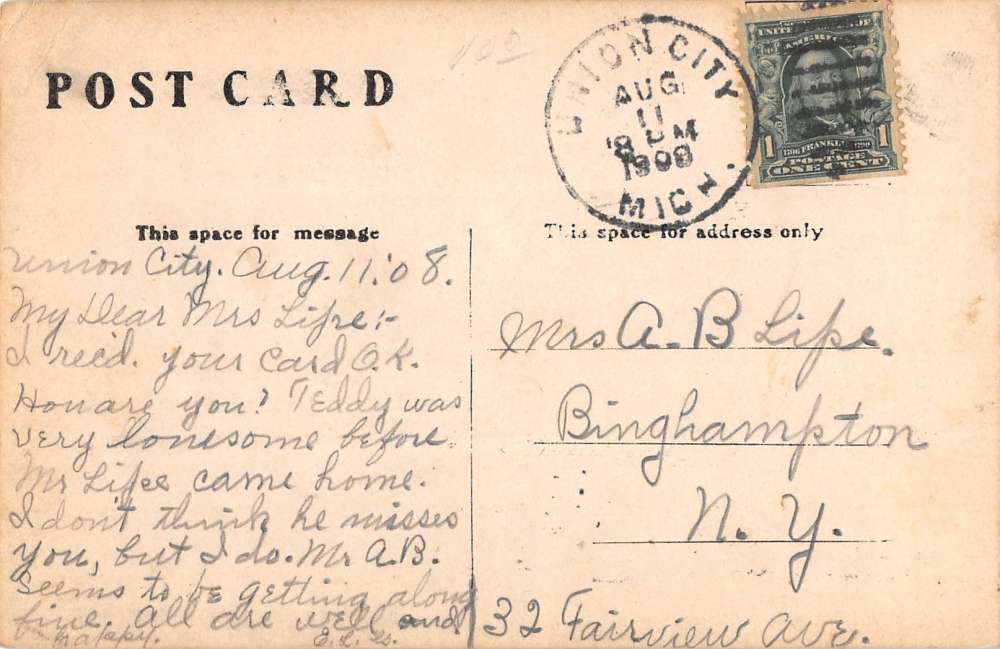 100
POST CARD
UNION CITY
AUG
11
8 PM
1908
MICH.
UNITED STATES OF
AMERICA
1 1706 FRANKLIN 1790 1
POSTAGE
ONE CENT
This space for message
Union City. Aug. 11. '08.
My Dear Mrs Lipe:-
I rec'd. your card O.K.
How are you? Teddy was
very lonesome before
Mr Lipe came home.
I don't think he misses
you, but I do. Mr A.B.
seems to be getting along
fine. All are well and
happy.
This space for address only
Mrs A. B Lipe.
Binghampton
N. Y.
32 Fairview Ave.